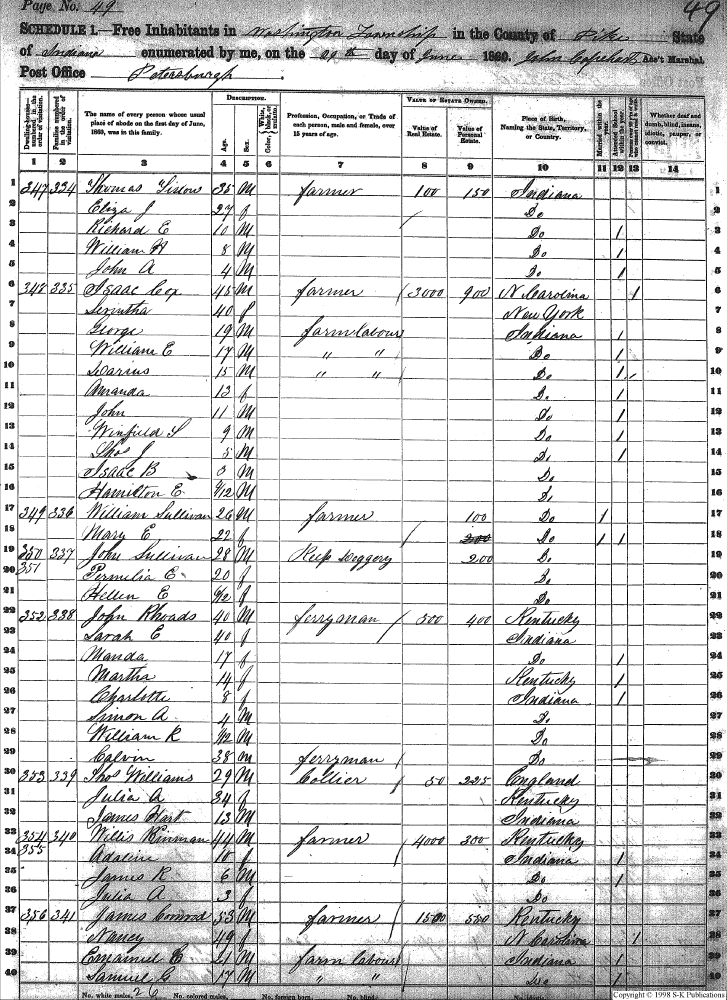 Page No. 49
49
SCHEDULE 1.—Free Inhabitants in Washington Township in the County of Pike State
of Indiana enumerated by me, on the 29th day of June 1860. John Capehart Ass't Marshal.
Post Office Petersburgh.
DESCRIPTION. VALUE OF ESTATE OWNED.
Dwelling-houses— numbered in the order of visitation. Families numbered in the order of visitation. The name of every person whose usual place of abode on the first day of June, 1860, was in this family. Age. Sex. Color, White, black, or mulatto. Profession, Occupation, or Trade of each person, male and female, over 15 years of age. Value of Real Estate. Value of Personal Estate. Place of Birth, Naming the State, Territory, or Country. Married within the year. Attended School within the year. Whether deaf and dumb, blind, insane, idiotic, pauper, or convict.
1 2 3 4 5 6 7 8 9 10 11 12 13 14
1 347 334 Thomas 35 M farmer 100 150 Indiana 1
2 Eliza J 27 f / Do 2
3 Richard E 10 M Do / 3
4 William H 8 M Do / 4
5 John A 4 M Do / 5
6 342 335 Isaac Cox 45 M farmer 3000 900 N. Carolina / 6
7 40 f New York 7
8 George 19 M farm labour Indiana / 8
9 William E 17 M " " Do / 9
10 Darius 15 M " " Do / / 10
11 Amanda 13 f Do / 11
12 John 11 M Do / 12
13 Winfield S 9 M Do / 13
14 Thos J 5 M Do / 14
15 Isaac B 3 M Do 15
16 Hamilton E /12 M Do 16
17 349 336 William Sullivan 26 M farmer 100 Do / 17
18 Mary E 22 f / Do / / 18
19 350 337 John Sullivan 28 M Keep 200 Do 19
20 351 Permelia E 20 f Do 20
21 Hellen E /12 f Do 21
22 352 338 John Rhoads 40 M ferryman 500 400 Kentucky 22
23 Sarah E 40 f Indiana 23
24 Manda 17 f Do / 24
25 Martha 14 f Kentucky / 25
26 Charlotte 8 f Indiana / 26
27 Simon A 4 M Do
28 William R /12 M Do 28
29 Calvin 38 M ferryman Do
30 353 339 Thos Williams 29 M Collier 50 225 England 30
31 Julia A 34 f Kentucky 31
32 James Hart 13 M Indiana
33 354 340 Willis Kinman 44 M farmer 4000 300 Kentucky
34 355 Adaline 10 f Indiana /
35 James R 6 M Do /
Julia A 3 f Do
37 356 341 James Conrad 53 M farmer 1500 550 Kentucky
Nancy 49 f N Carolina /
39 Emanuel C 21 M farm labour Indiana /
40 Samuel G 17 M " " Do /
No. white males, 26 No. colored males, No. foreign born, No. blind,
Copyright © 1998 S-K Publications